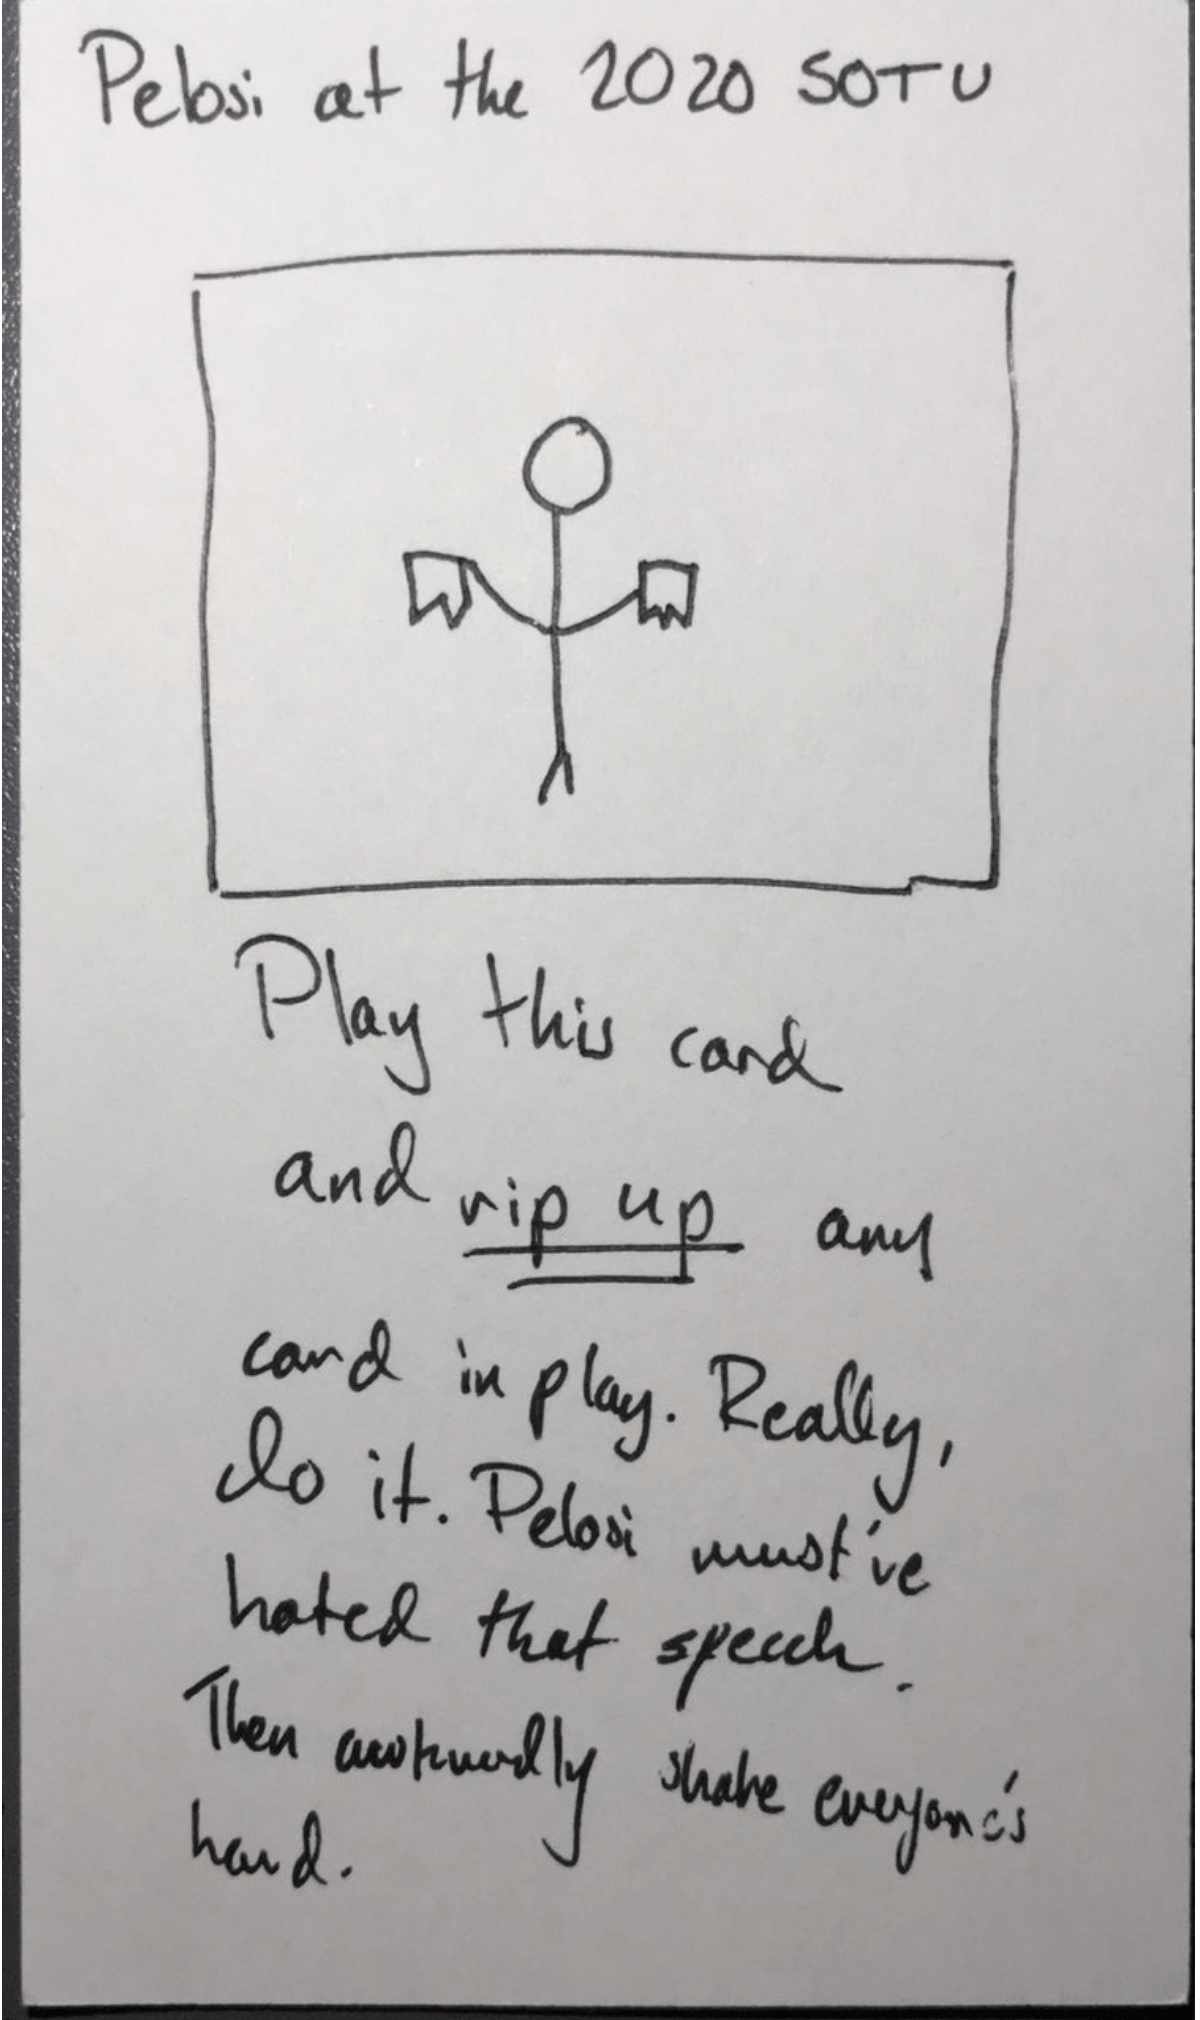 Pelosi at the 2020 SOTU
Play this card
and rip up any
card in play. Really,
do it. Pelosi must've
hated that speech.
Then awkwardly shake everyone's
hand.